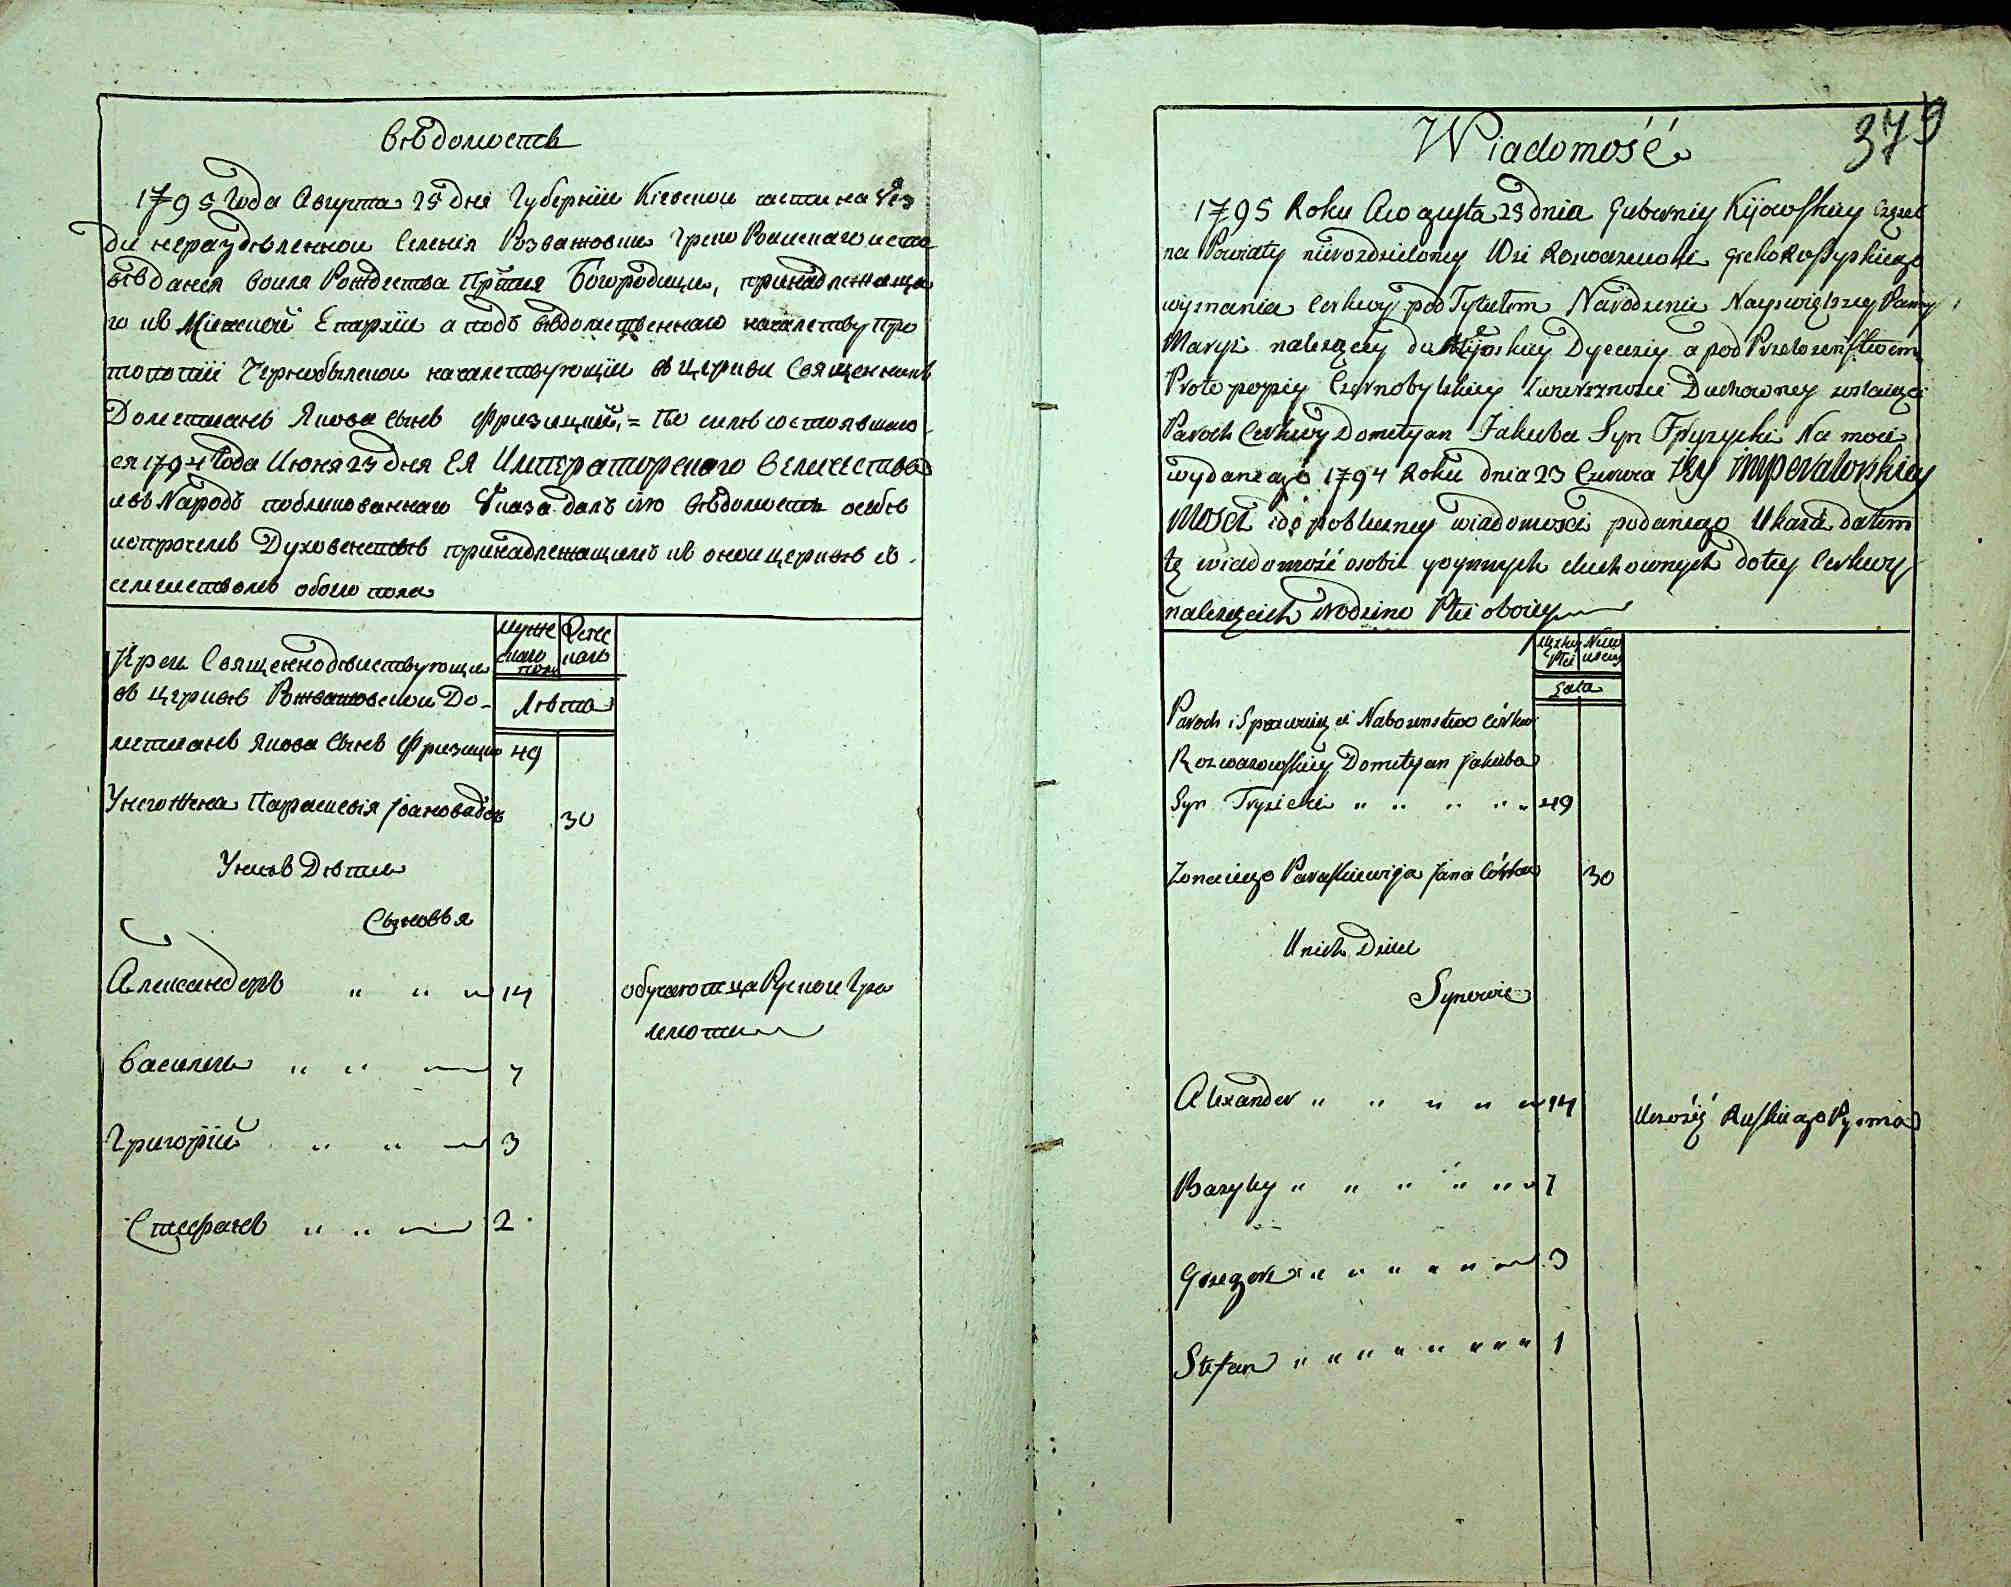 Вѣдомость
1795 года Августа 25 дня Губернїи Кіевской части на Уез
ды нераздѣленной Селенія Розважовки Греко Россійскаго испо
вѣданія Рождества Прстыя Богородицы, принадлежаща
го къ Минской Епархїи а подъ вѣдомственнаго началству Про
топопїи Чернобылской началствующїй въ церкви Священникъ
Дометианъ Якова Сынъ Фризицкїй = По силѣ состоявшаго
ся 1794 года Июня 23 дня ЕЯ Императорскаго Величества
и въ Народъ публикованнаго Указа далъ сію вѣдомость о себѣ
и опрочемъ Духовенствѣ принадлежащимъ къ оной церквѣ съ
семействомъ обоего пола
Муже
скаго
пола
Женс
каго
Лѣта
Іерей Священнодѣйствующи
въ церквѣ Розважовской До-
метианъ Якова Сынъ Фризицки 49
У него жена Параскевія Іоановадочь 30
У нихъ Дѣти
Сыновья
Александеръ " " " 14 обучаютца Руской Гра
моти
Василий " " 7
Григорїй " " 3
Стефанъ " " 2
379
Wiadomość
1795 Roku Awgusta 25 dnia Guberniy Kijowskiey Części
na Powiaty nierozdzieloney Wsi Rozwazewki Greko Rossyskiego
wyznania Cerkwy pod Tytułem Narodzenia Nayswiętszey Panny
Maryi należącey do Mińskiey Dyeceziy a pod Przełożeństwem
Protopopiy Czernobylskiey Zwierznosci Duchowney zostaiący
Paroch Cerkwy Dometyan Jakuba Syn Fryzycki Na mocy
wydanego 1794 Roku dnia 23 Czerwca Jey Imperatorskiey
Mosci i do publiczney wiadomosci podanego Ukazu dałem
tę wiadomość osobie y innych duchownych do tey Cerkwy
należących Rodzino Płci oboiey
Męzkiey
Płci
Niew
iesciey
Lata
Paroch i Sprawuiący Nabozenstwo Cerkwi
Rozwazowskiey Dometyan Jakuba
Syn Fryzicki " " " " " 49
Zona iego Paraskiewija Jana Córka 30
U nich Dzieci
Synowie
Alexander " " " " " 14 Uczącÿ Ruskiego Pysma
Bazyly " " " " " 7
Grzegorz " " " " " " 3
Stefan " " " " " " " " 1